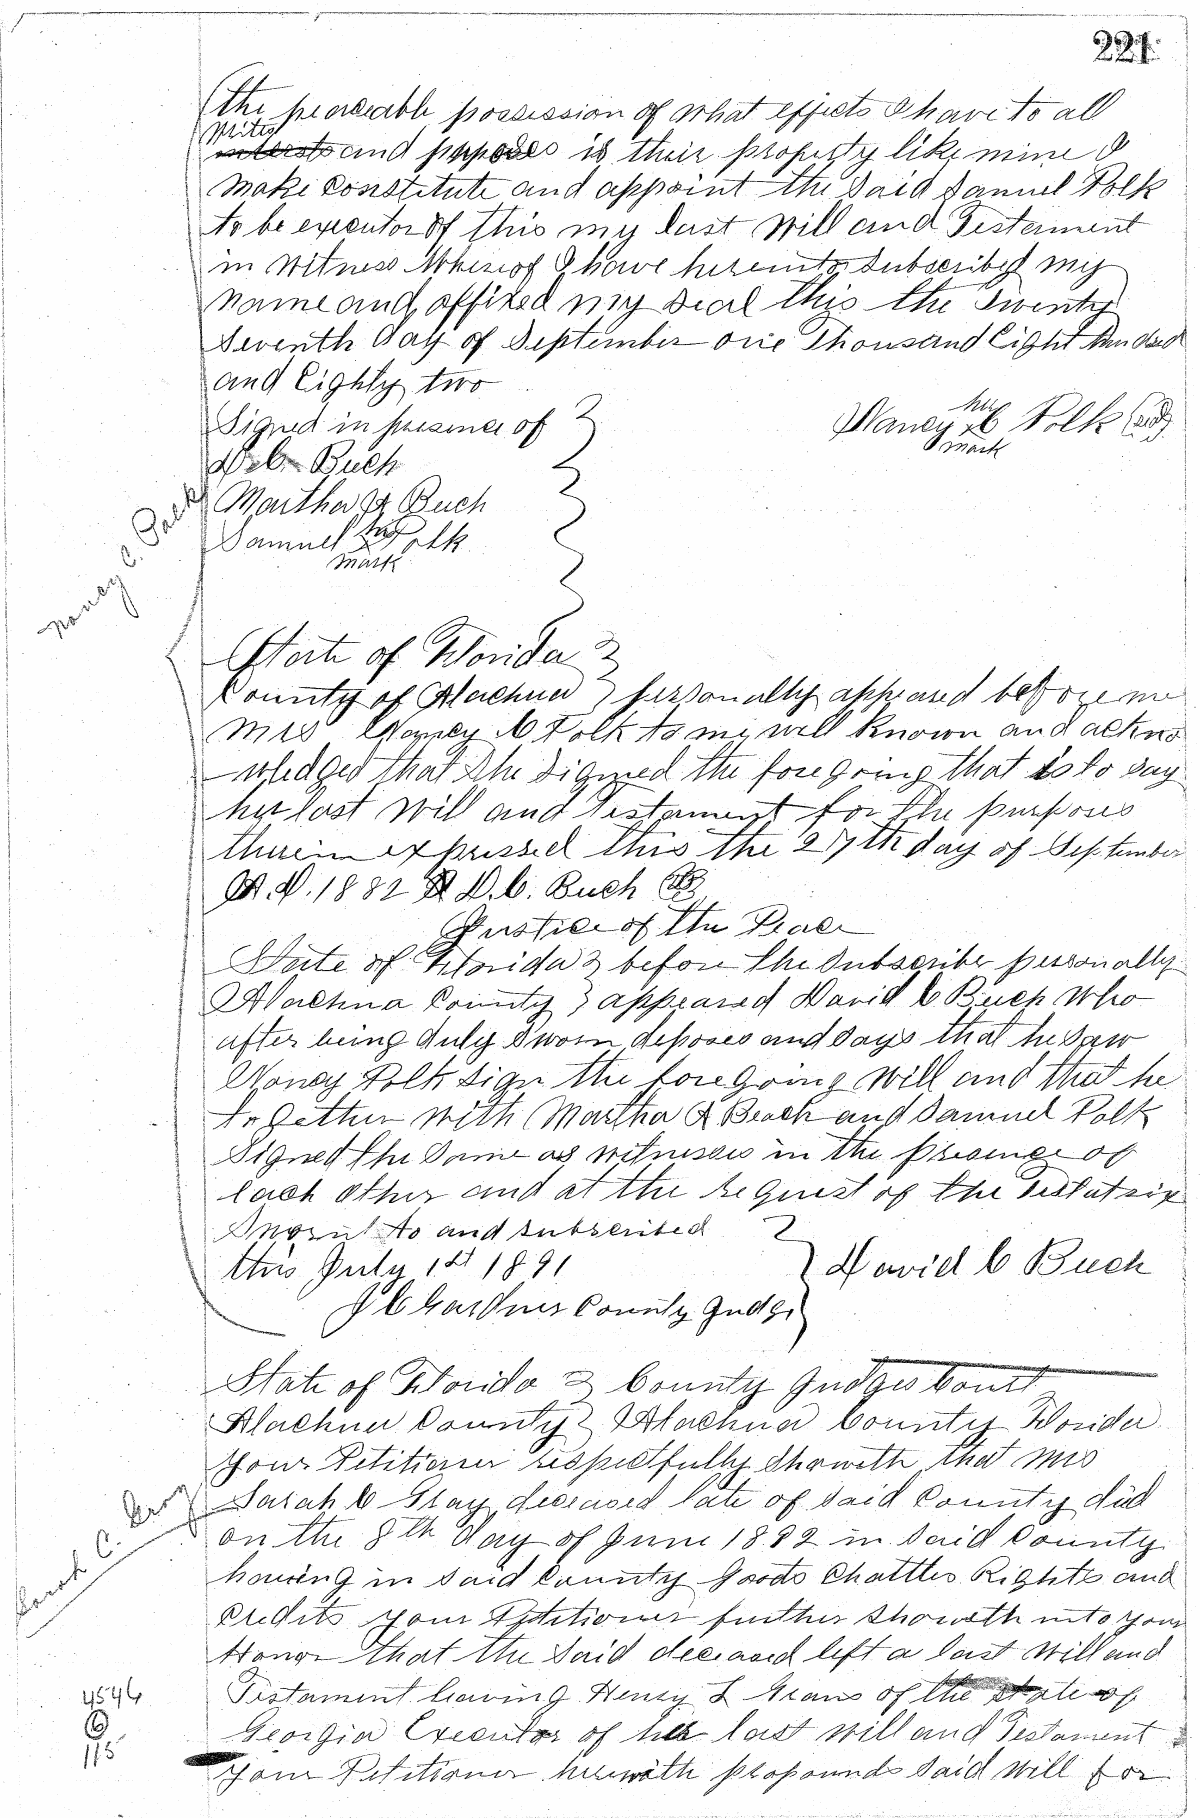 221
the peaceable possession of what effects I have to all
intents and purposes is their property like mine I
make constitute and appoint the said Samuel Polk
to be executor of this my last Will and Testament
in Witness Whereof I have hereunto subscribed my
name and affixed my seal this the twenty
Seventh day of September one Thousand Eight Hundred
and Eighty two
Signed in presence of
her
Nancy C Polk
mark
D. C. Buch
Martha A Buch
Samuel his Polk
mark
Nancy C. Polk
State of Florida
County of Alachua personally appeared before me
Mrs Nancy C Polk to me well known and ackno
wledged that She Signed the foregoing that is to say
her last Will and Testament for the purposes
therein expressed this the 27th day of September
A.D. 1882 D.C. Buch
Justice of the Peace
State of Florida before the Subscriber personally
Alachua County appeared David C Buch Who
after being duly sworn deposes and says that he saw
Nancy Polk sign the foregoing Will and that he
together with Martha A Beach and Samuel Polk
Signed the Same as witnesses in the presence of
each other and at the request of the Testatrix
Sworn to and subscribed
this July 1st 1891
David C Buch
J C Gardner County Judge
State of Florida County Judges Court
Alachua County Alachua County Florida
Your Petitioner respectfully Showeth that Mrs
Sarah C Gray deceased late of said County did
on the 8th day of June 1892 in Said County
having in said County Goods Chattles Rights and
Credits your Petitioner further Showeth unto your
Honor that the Said deceased left a last Will and
Sarah C. Gray
Testament leaving Henry L of the state of
Georgia Executor of her last will and Testament
4546
6
115
Your Petitioner herewith propounds Said Will for